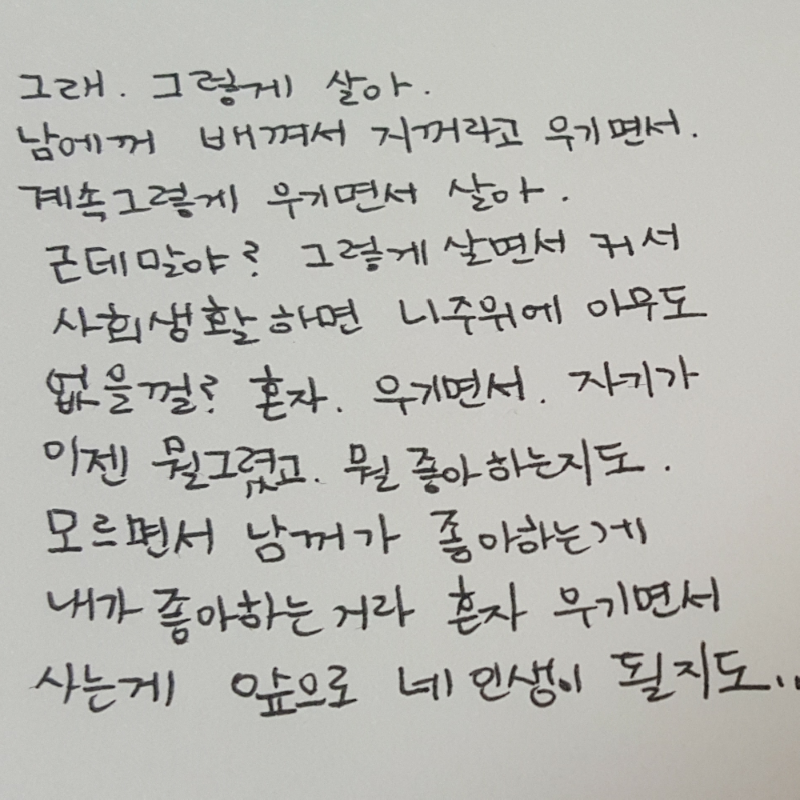 그래. 그렇게 살아.
남에꺼 배껴서 지꺼라고 우기면서.
계속그렇게 우기면서 살아.
근데말야? 그렇게살면서 커서
사회생활하면 니주위에 아무도
없을껄? 혼자. 우기면서. 자기가
이젠 뭘그렸고. 뭘 좋아하는지도.
모르면서 남꺼가 좋아하는게
내가 좋아하는거라 혼자 우기면서
사는게 앞으로 네인생이 될지도..